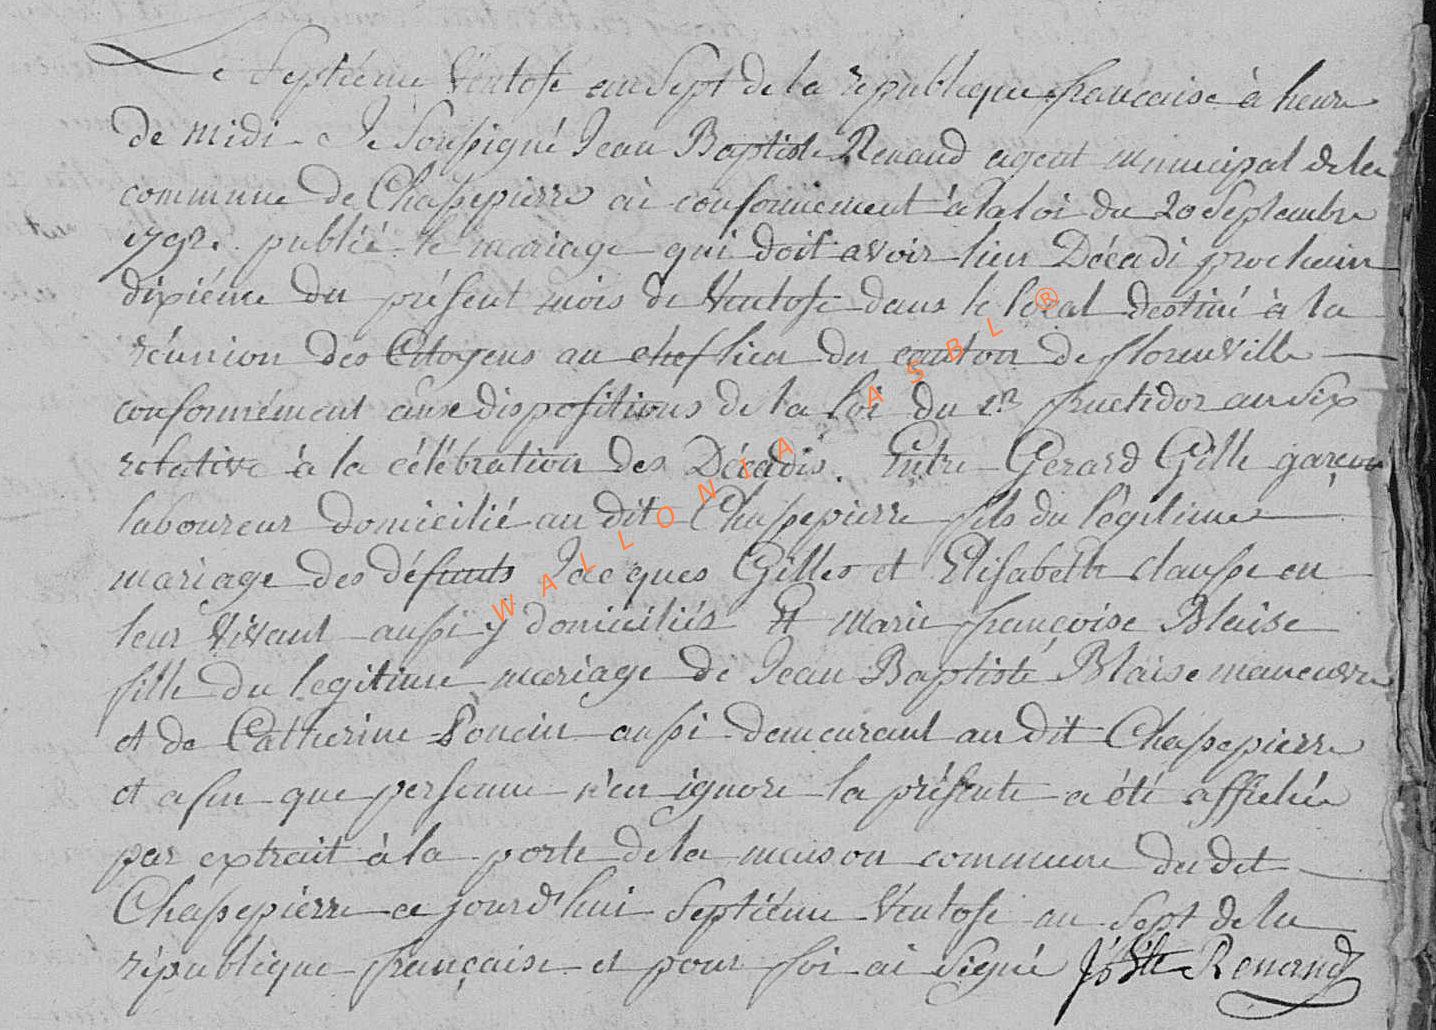 Le Septiéme Ventose an Sept de la republique francaise à heure
de midi Je Soussigné Jean Baptiste Renaud agent municipal de la
commune de Chassepierre ai conformement à la loi du 20 Septembre
1792. publié le mariage qui doit avoir lieu Décadi prochain
dixiéme du présent mois de Ventose dans le local destiné à la
réunion des Citoyens au chef lieu du canton de florenville
conformément aux dispositions de la loi du 1er fructidor an six
relative à la célébration des Décadis. Entre Gerard Gille garçon
laboureur domicilié au dit Chassepierre fils du légitime
mariage des défunts Jacques Gilles et Elisabeth Clausse en
leur vivant aussi y domiciliés Et Marie françoise Blaise
fille du legitime mariage de Jean Baptiste Blaise maneuvre
et de Catherine Poncin aussi demeurant au dit Chassepierre
et afin que personne n'en ignore la présente a été affichée
par extrait à la porte de la maison commune du dit
Chassepierre ce jourd'hui Septiéme Ventose an Sept de la
république française et pour foi ai Signé JBte Renaud
WALLONIA ASBL ®